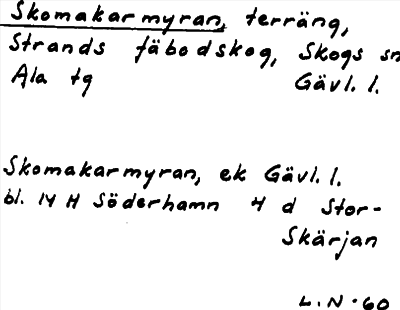 Skomakarmyran, terräng,
Strands fäbodskog, Skogs sn
Ala tg Gävl. l.
Skomakarmyran, ek Gävl. l.
bl. 14 H Söderhamn 4 d Stor-
Skärjan
L.N.60